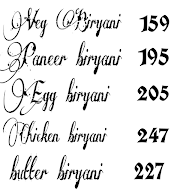 Veg Biryani 159
Paneer biryani 195
Egg biryani 205
Chicken biryani 247
butter biryani 227